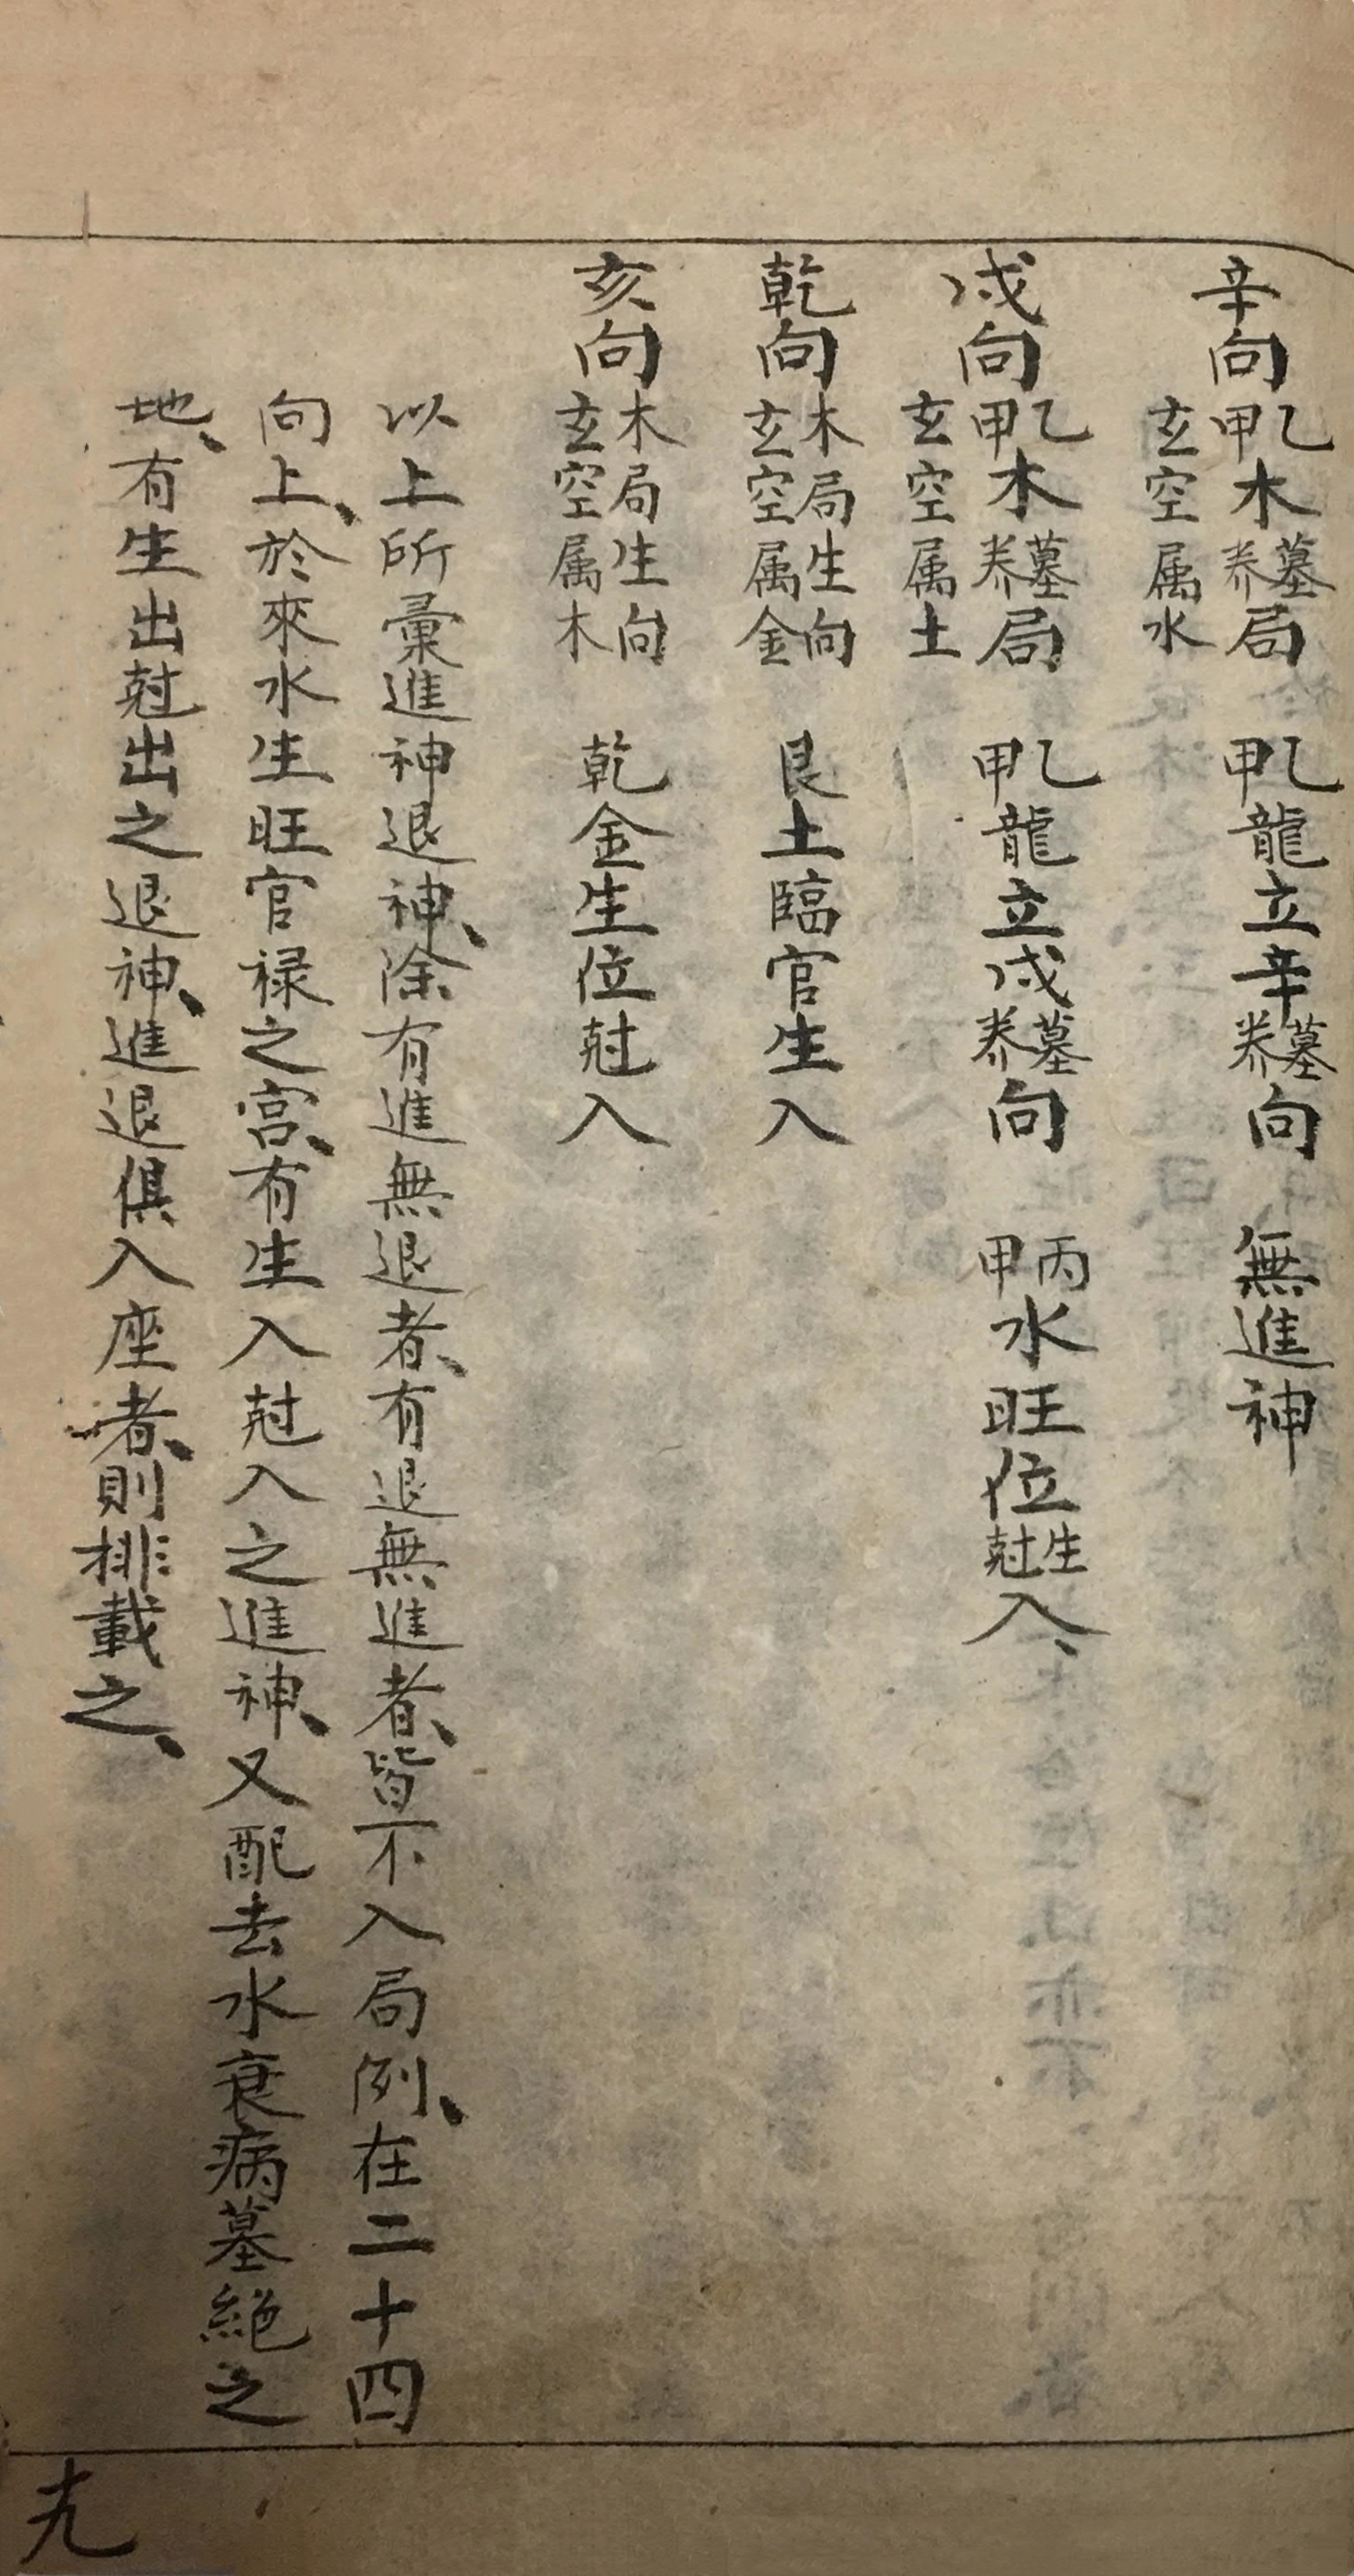 辛向乙甲木墓养局玄空属水　乙甲龍立辛墓养向　無進神
戌向乙甲木墓养局玄空属土　乙甲龍立戌墓养向　丙甲水旺位生尅入、
乾向木局生向玄空属金　艮土臨官生入
亥向木局生向玄空属木　乾金生位尅入
以上所彙進神退神、除有進無退者、有退無進者、皆不入局例、在二十四
向上、於來水生旺官禄之宮、有生入尅入之進神、又配去水衰病墓絕之
地、有生出尅出之退神、進退俱入座者、則排載之、